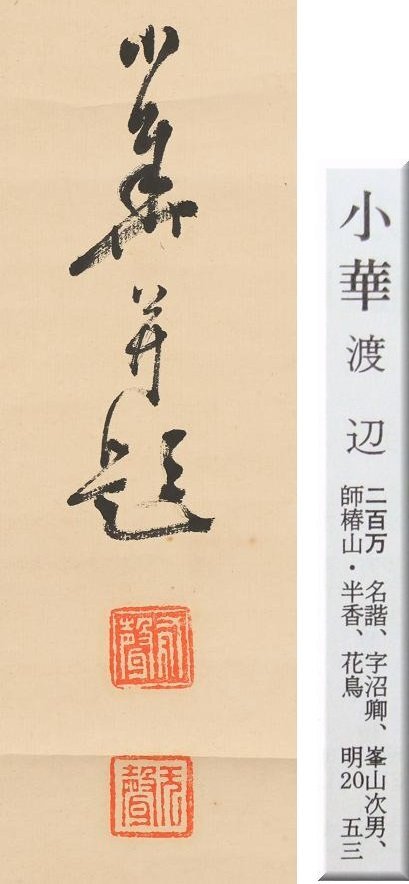 小華并題
小華 渡辺
二百万 名諧、字沼卿、崋山次男、
師椿山・半香、花鳥 明20 五三